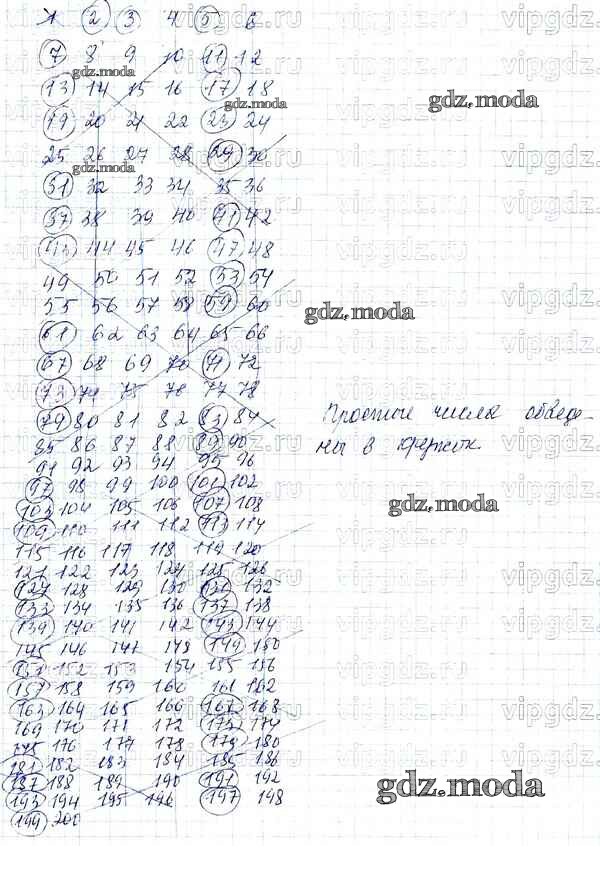 1 2 3 4 5 6
7 8 9 10 11 12
13 14 15 16 17 18
19 20 21 22 23 24
25 26 27 28 29 30
31 32 33 34 35 36
37 38 39 40 41 42
43 44 45 46 47 48
49 50 51 52 53 54
55 56 57 58 59 60
61 62 63 64 65 66
67 68 69 70 71 72
73 74 75 76 77 78
79 80 81 82 83 84
85 86 87 88 89 90
91 92 93 94 95 96
97 98 99 100 101 102
103 104 105 106 107 108
109 110 111 112 113 114
115 116 117 118 119 120
121 122 123 124 125 126
127 128 129 130 131 132
133 134 135 136 137 138
139 140 141 142 143 144
145 146 147 148 149 150
151 152 153 154 155 156
157 158 159 160 161 162
163 164 165 166 167 168
169 170 171 172 173 174
175 176 177 178 179 180
181 182 183 184 185 186
187 188 189 190 191 192
193 194 195 196 197 198
199 200
Простые числа обведе-
ны в кружок.
gdz.moda
gdz.moda
gdz.moda
gdz.moda
gdz.moda
gdz.moda
gdz.moda
vipgdz.ru